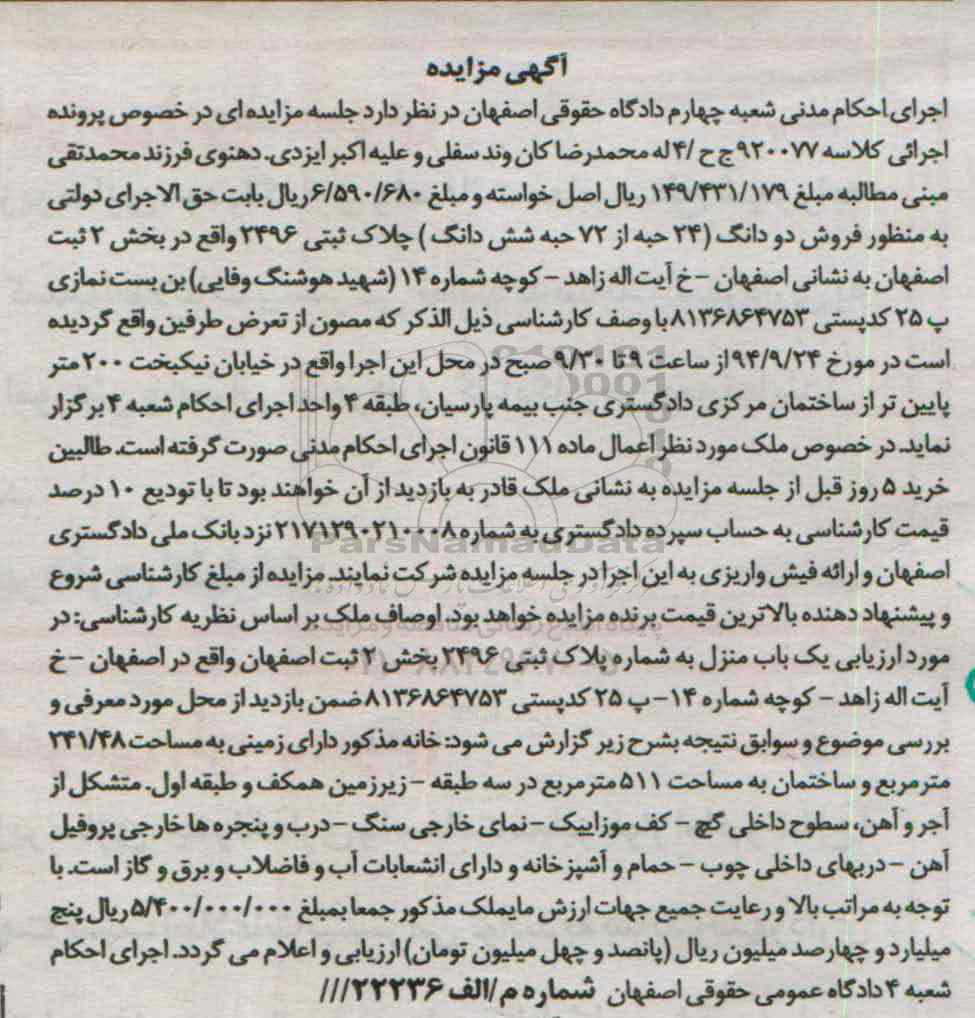 آگهی مزایده
اجرای احکام مدنی شعبه چهارم دادگاه حقوقی اصفهان در نظر دارد جلسه مزایده ای در خصوص پرونده
اجرائی کلاسه ۹۲۰۰۷۷ج ح /۴ له محمدرضا کان وند سفلی و علیه اکبر ایزدی. دهنوی فرزند محمدتقی
مبنی مطالبه مبلغ ۱۴۹/۴۳۱/۱۷۹ ریال اصل خواسته و مبلغ ۶/۵۹۰/۶۸۰ریال بابت حق الاجرای دولتی
به منظور فروش دو دانگ (۲۴ حبه از ۷۲ حبه شش دانگ ) چلاک ثبتی ۲۴۹۶ واقع در بخش ۲ ثبت
اصفهان به نشانی اصفهان -خ آیت اله زاهد - کوچه شماره ۱۴ (شهید هوشنگ وفایی) بن بست نمازی
پ ۲۵ کدپستی ۸۱۳۶۸۶۴۷۵۳با وصف کارشناسی ذیل الذکر که مصون از تعرض طرفین واقع گردیده
است در مورخ ۹۴/۹/۲۴از ساعت ۹ تا ۹/۳۰ صبح در محل این اجرا واقع در خیابان نیکبخت ۲۰۰ متر
پایین تر از ساختمان مرکزی دادگستری جنب بیمه پارسیان، طبقه ۴ واحد اجرای احکام شعبه ۴ برگزار
نماید. در خصوص ملک مورد نظر اعمال ماده ۱۱۱ قانون اجرای احکام مدنی صورت گرفته است. طالبین
خرید ۵ روز قبل از جلسه مزایده به نشانی ملک قادر به بازدید از آن خواهند بود تا با تودیع ۱۰ درصد
قیمت کارشناسی به حساب سپرده دادگستری به شماره ۲۱۷۱۲۹۰۲۱۰۰۰۸ نزد بانک ملی دادگستری
اصفهان و ارائه فیش واریزی به این اجرا در جلسه مزایده شرکت نمایند. مزایده از مبلغ کارشناسی شروع
و پیشنهاد دهنده بالاترین قیمت برنده مزایده خواهد بود. اوصاف ملک بر اساس نظریه کارشناسی: در
مورد ارزیابی یک باب منزل به شماره پلاک ثبتی ۲۴۹۶ بخش ۲ ثبت اصفهان واقع در اصفهان -خ
آیت اله زاهد - کوچه شماره ۱۴- پ ۲۵ کدپستی ۸۱۳۶۸۶۴۷۵۳ ضمن بازدید از محل مورد معرفی و
بررسی موضوع و سوابق نتیجه بشرح زیر گزارش می شود: خانه مذکور دارای زمینی به مساحت ۲۴۱/۴۸
مترمربع و ساختمان به مساحت ۵۱۱ مترمربع در سه طبقه - زیرزمین همکف و طبقه اول. متشکل از
آجر و آهن، سطوح داخلی گچ - کف موزاییک -نمای خارجی سنگ -درب و پنجره ها خارجی پروفیل
آهن -دربهای داخلی چوب - حمام و آشپزخانه و دارای انشعابات آب و فاضلاب و برق و گاز است. با
توجه به مراتب بالا و رعایت جمیع جهات ارزش مایملک مذکور جمعا بمبلغ ۵/۴۰۰/۰۰۰/۰۰۰ ریال پنج
میلیارد و چهارصد میلیون ریال (پانصد و چهل میلیون تومان) ارزیابی و اعلام می گردد. اجرای احکام
شعبه ۴ دادگاه عمومی حقوقی اصفهان شماره م/الف ۲۲۲۳۶///
ParsNamadData